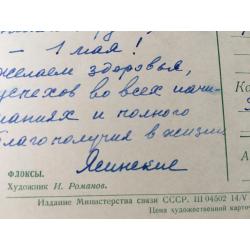 – 1 мая!
желаем здоровья,
успехов во всех начи-
наниях и полного
благополучия в жизни
Ясинские
ФЛОКСЫ.
Художник И. Романов.
Издание Министерства связи СССР. Ш 04502 14/V
Цена художественной карточ